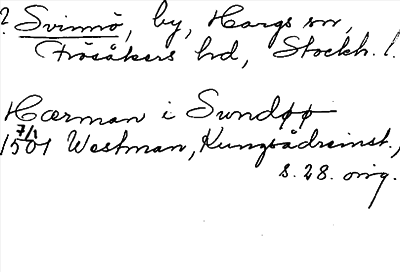 ? Svinnö, by, Hargs sn,
Frösåkers hd, Stockh. l.
Hærman i Sundøø
7/1
1501 Westman, Kungsådreinst.,
s. 28. orig.